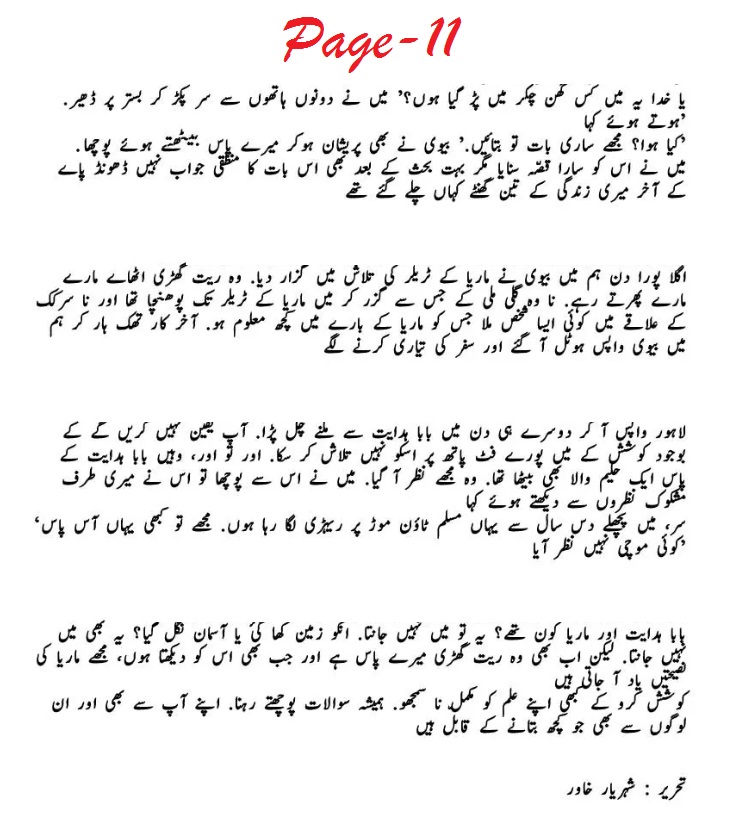 Page-11
یا خدا یہ میں کس گھن چکر میں پڑ گیا ہوں؟' میں نے دونوں ہاتھوں سے سر پکڑ کر بستر پر ڈھیر.
'ہوتے ہوئے کہا
'کیا ہوا؟ مجھے ساری بات تو بتائیں.' بیوی نے بھی پریشان ہوکر میرے پاس بیٹھتے ہوئے پوچھا.
میں نے اس کو سارا قصّہ سنایا مگر بہت بحث کے بعد بھی اس بات کا منطقی جواب نہیں ڈھونڈ پاے
کے آخر میری زندگی کے تین گھنٹے کہاں چلے گئے تھے
اگلا پورا دن ہم میں بیوی نے ماریا کے ٹریلر کی تلاش میں گزار دیا. وہ ریت گھڑی اٹھاے مارے
مارے پھرتے رہے. نا وہ گلی ملی کے جس سے گزر کر میں ماریا کے ٹریلر تک پوھنچا تھا اور نا سرکک
کے علاقے میں کوئی ایسا شخص ملا جس کو ماریا کے بارے میں کچھ معلوم ہو. آخر کار تھک ہار کر ہم
میں بیوی واپس ہوٹل آ گئے اور سفر کی تیاری کرنے لگے
لاہور واپس آ کر دوسرے ہی دن میں بابا ہدایت سے ملنے چل پڑا. آپ یقین نہیں کریں گے کے
بوجود کوشش کے میں پورے فٹ پاتھ پر اسکو نہیں تلاش کر سکا. اور تو اور، وہیں بابا ہدایت کے
پاس ایک حلیم والا بھی بیٹھا تھا. وہ مجھے نظر آ گیا. میں نے اس سے پوچھا تو اس نے میری طرف
مشکوک نظروں سے دیکھتے ہوئے کہا
سر، میں پچھلے دس سال سے یہاں مسلم ٹاؤن موڑ پر ریہڑی لگا رہا ہوں. مجھے تو کبھی یہاں آس پاس'
'کوئی موچی نہیں نظر آیا
بابا ہدایت اور ماریا کون تھے؟ یہ تو میں نہیں جانتا. انکو زمین کھا گئی یا آسمان نگل گیا؟ یہ بھی میں
نہیں جانتا. لیکن اب بھی وہ ریت گھڑی میرے پاس ہے اور جب بھی اس کو دیکھتا ہوں، مجھے ماریا کی
نصیحتیں یاد آ جاتی ہیں
کوشش کرو کے کبھی اپنے علم کو مکمل نا سمجھو. ہمیشہ سوالات پوچھتے رہنا. اپنے آپ سے بھی اور ان
لوگوں سے بھی جو کچھ بتانے کے قابل ہیں
تحریر : شہریار خاور